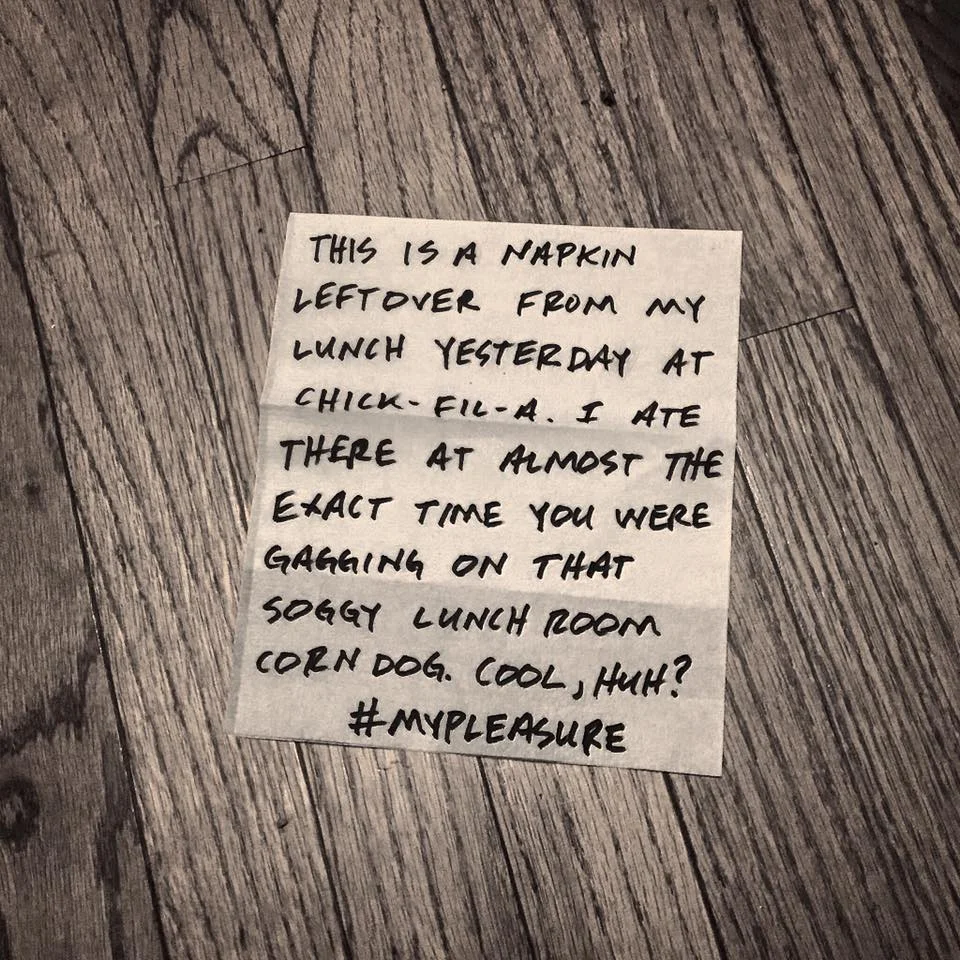 THIS IS A NAPKIN
LEFTOVER FROM MY
LUNCH YESTERDAY AT
CHICK-FIL-A. I ATE
THERE AT ALMOST THE
EXACT TIME YOU WERE
GAGGING ON THAT
SOGGY LUNCH ROOM
CORN DOG. COOL, HUH?
#MYPLEASURE